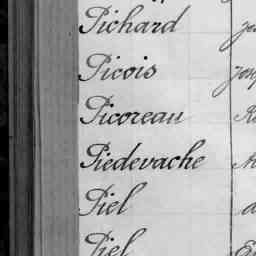 Pichard
Picois
Picoreau
Piedevache
Piel
Piel